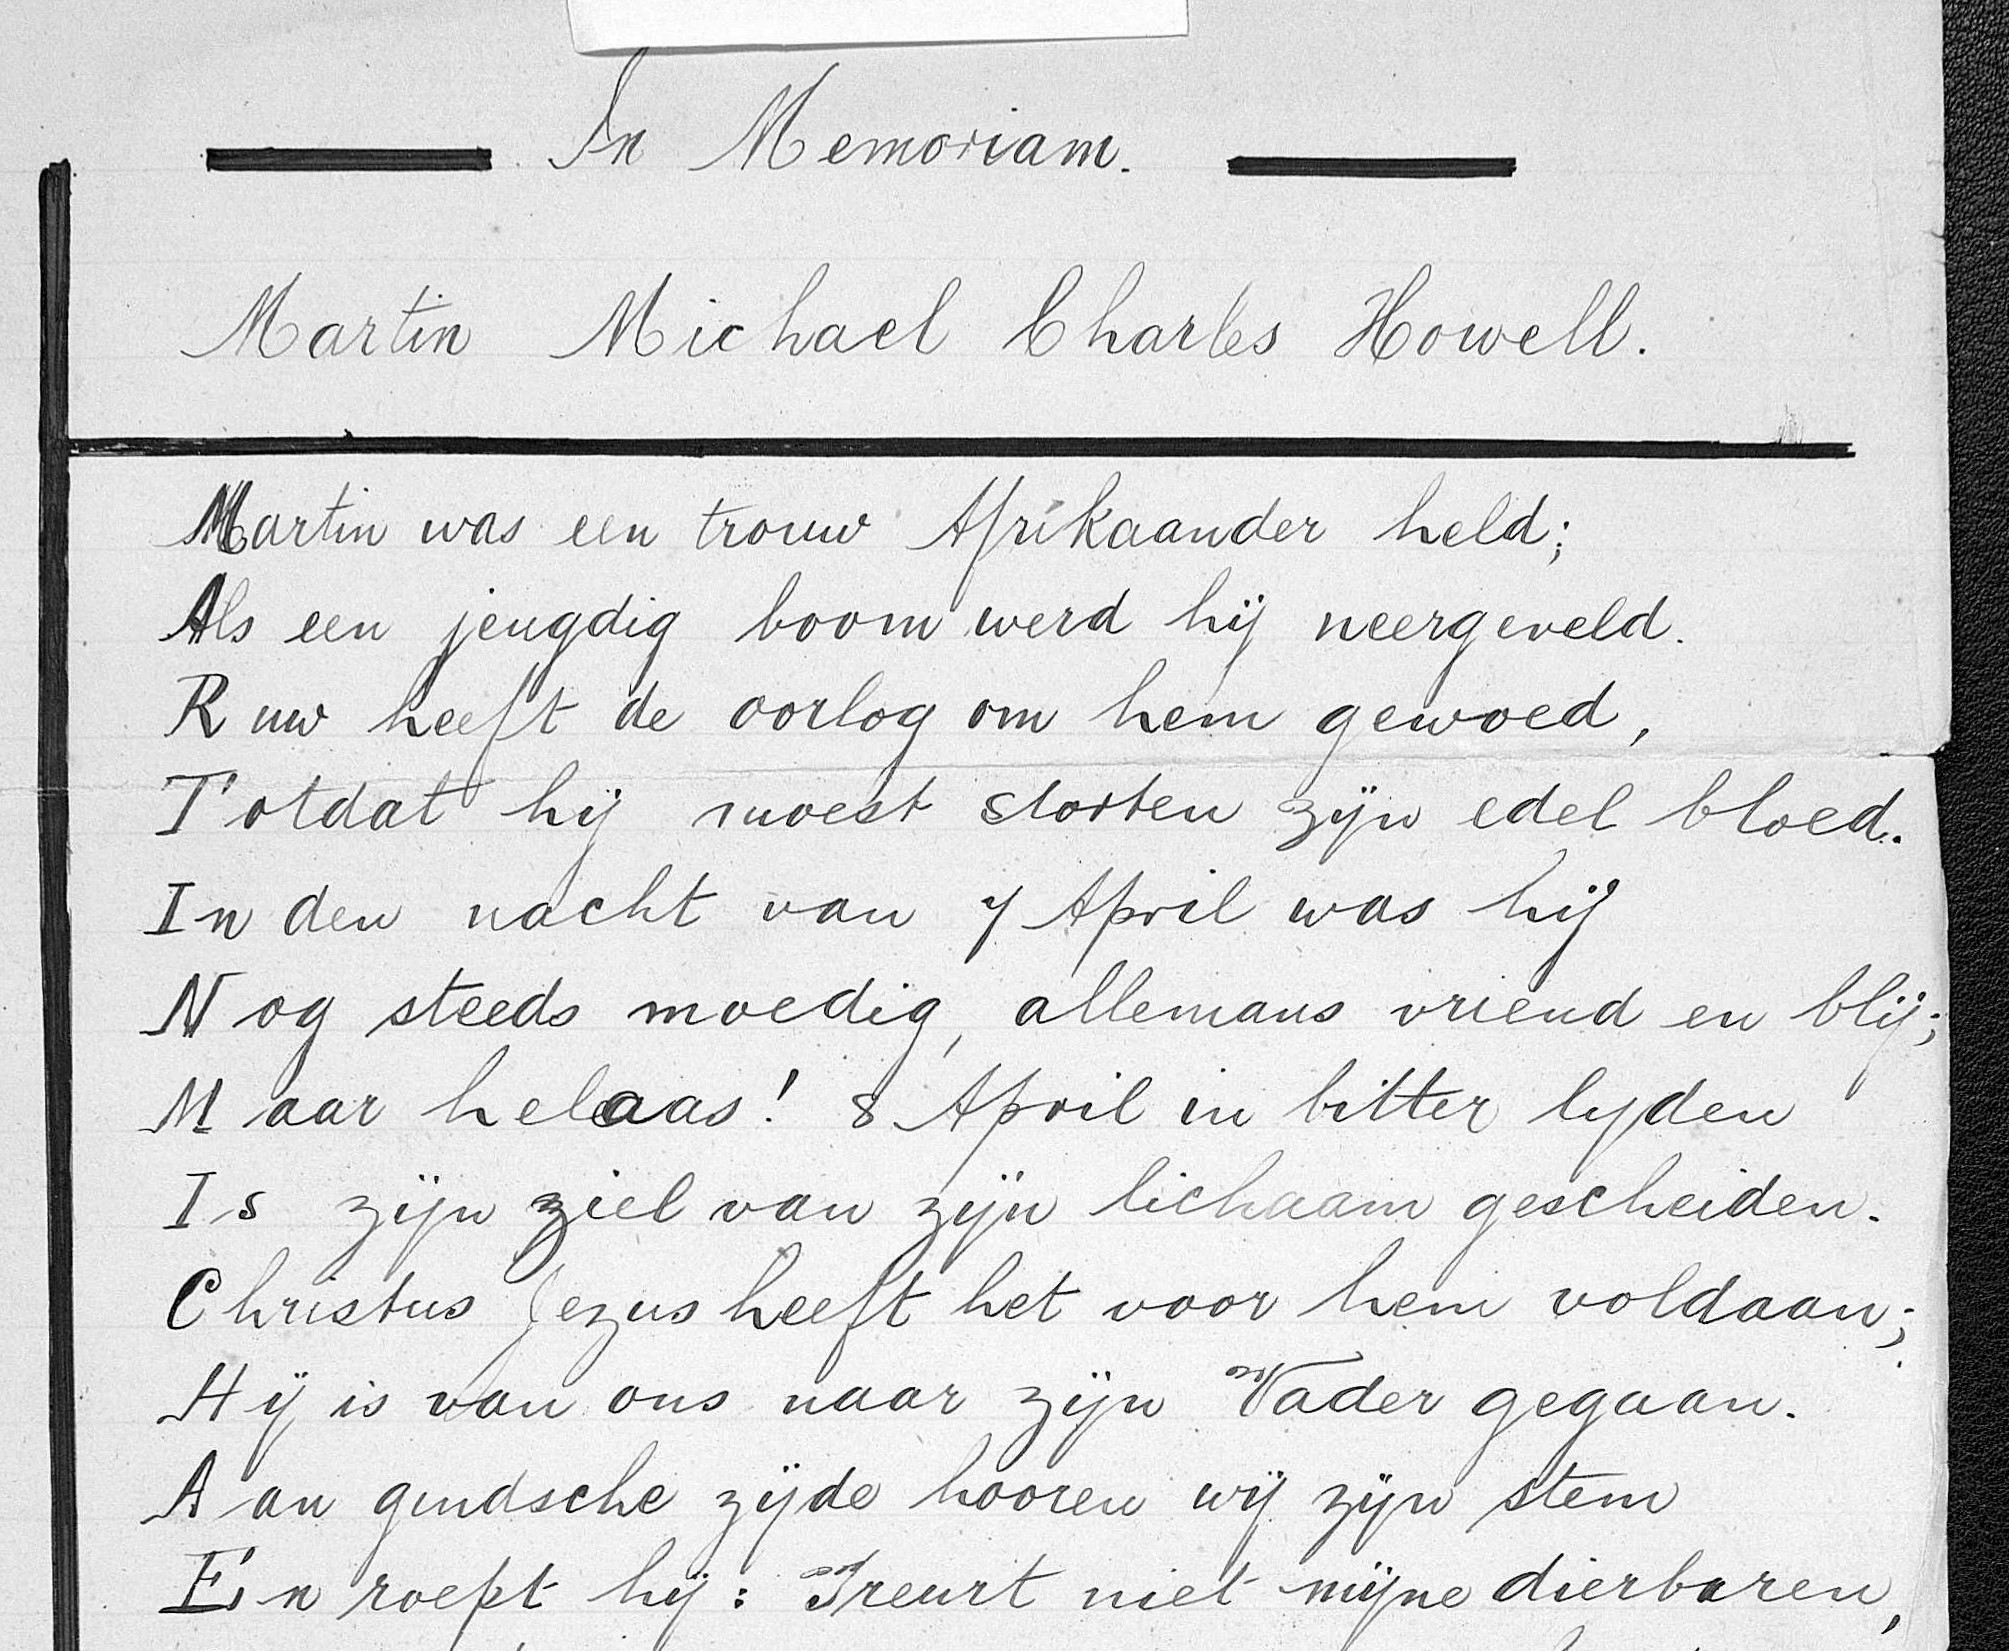 In Memoriam.
Martin Michael Charles Howell.
Martin was een trouw Afrikaander held;
Als een jeugdig boom werd hij neergeveld.
Ruw heeft de oorlog om hem gewoed,
Totdat hij moest storten zijn edel bloed.
In den nacht van 7 April was hij
Nog steeds moedig, allemans vriend en blij;
Maar helaas! 8 April in bitter lyden
Is zijn ziel van zijn lichaam gescheiden.
Christus Jezus heeft het voor hem voldaan;
Hij is van ons naar zijn Vader gegaan.
Aan gindsche zijde hooren wij zijn stem
En roept hij: Treurt niet mijne dierbaren,